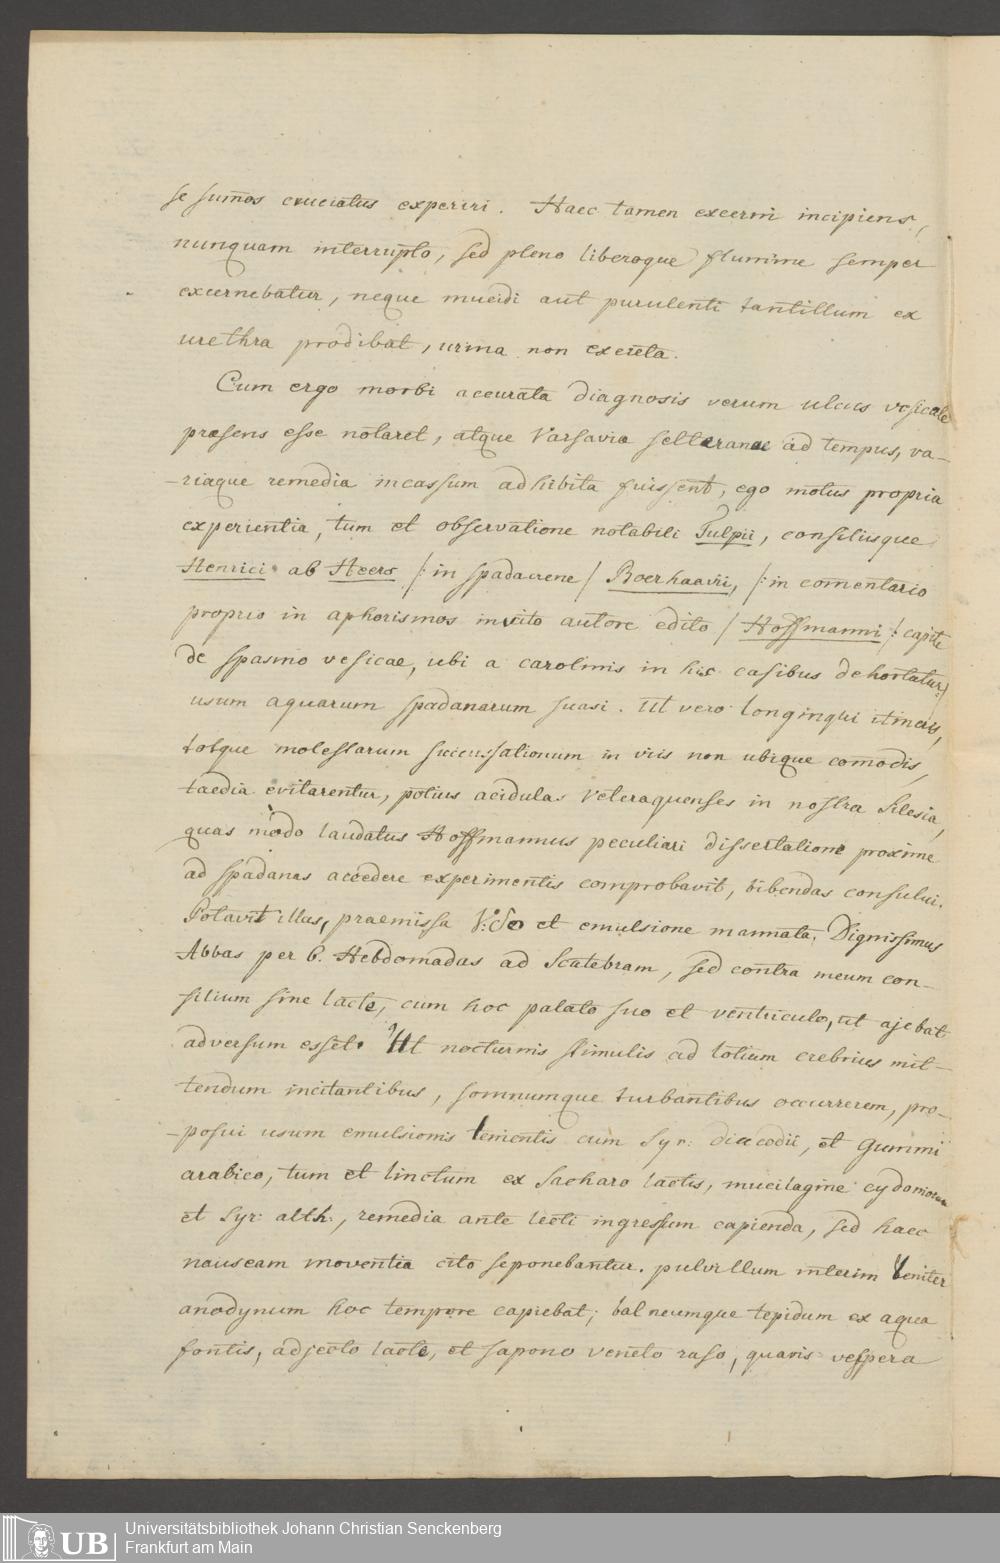 se sum̄os cruciatus experiri. Haec tamen excerni incipiens,
nunquam interrupto, sed pleno liberoque flumine semper
excernebatur, neque mucidi aut purulenti tantillum ex
urethra prodibat, urina non exeunta.
Cum ergo morbi accurata diagnosis verum ulcus vesicale
praesens esse notaret, atque Varsavia selteranae ad tempus, va-
-riaque remedia incassum adhibita fuissent, ego motus propria
experientia, tum et observatione notabili Tulpii, consiliisque
Henrici ab Heers /: in spadacrene / Boerhaavii, /: in com̄entario
proprio in aphorismos invito autore edito / Hoffmanni /: capite
de spasmo vesicae, ubi a carolinis in his casibus dehortatur:/
usum aquarum spadanarum suasi. Ut vero longinqui itineris,
totque molestarum succussationum in viis non ubique com̄odis,
taedia evitarentur, potius acidulas Veteraquenses in nostra Silesia,
quas modo laudatus Hoffmannus peculiari dissertatione proxime
ad spadanas accedere experimentis comprobavit, bibendas consului.
Potavit illas, praemissa V:So et emulsione mannata, Dignissimus
Abbas per 6. Hebdomadas ad Scatebram, sed contra meum con-
silium sine lacte, cum hoc palato suo et ventriculo, ut ajebat
adversum esset. Ut nocturnis stimulis ad lotium crebrius mit-
tendum incitantibus, somnumque turbantibus occurrerem, pro-
-posui usum emulsionis lenientis cum Syr: diacodii, et Gummi
arabico, tum et linctum ex Sacharo lactis, mucilagine cydoniorum
et Syr: alth:, remedia ante lecti ingressum capienda, sed haec
nauseam moventia cito seponebantur. pulvillum interim leniter
anodynum hoc tempore capiebat; balneumque tepidum ex aqua
fontis, adjecto lacte, et sapone veneto raso, quavis vespera
Universitätsbibliothek Johann Christian Senckenberg
Frankfurt am Main
UB